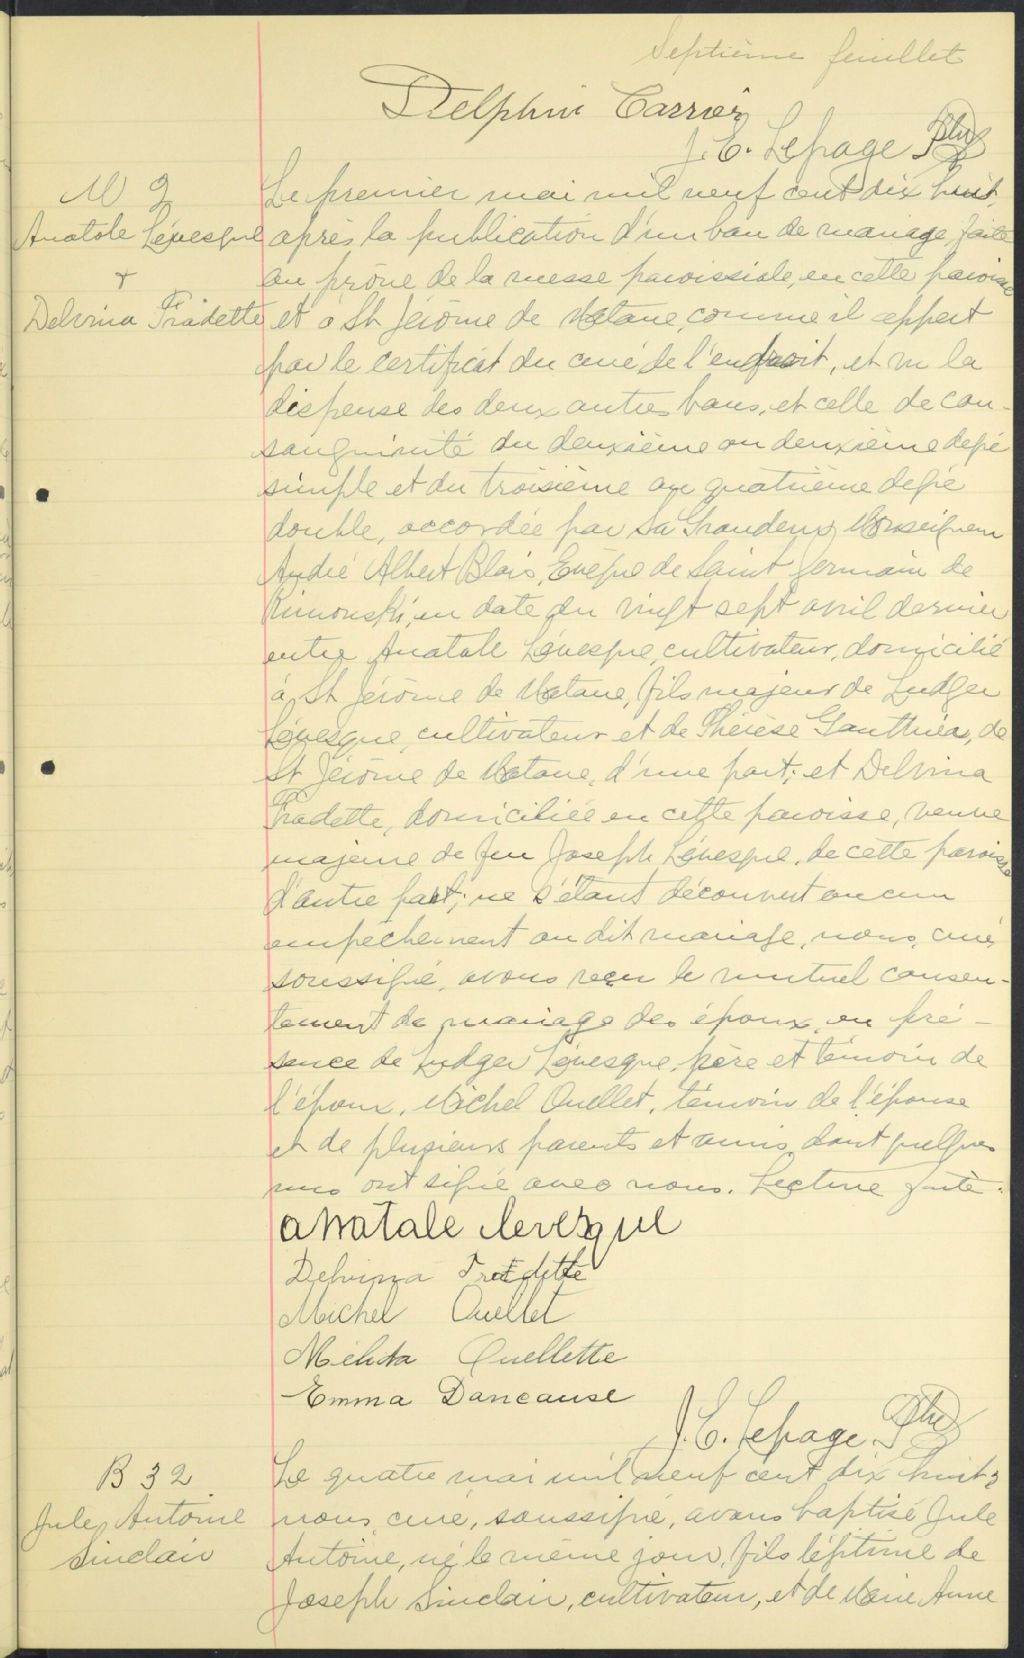 Septième feuillet
Delphin Carrier
J. E. Lepage Ptre
M 2
Anatole Lévesque
+
Delvina Fradette
Le premier mai mil neuf cent dix huit,
après la publication d'un ban de mariage faite
au prône de la messe paroissiale, en cette paroisse
et à St Jérôme de Matane, comme il appert
par le certificat du curé de l'endroit, et vu la
dispense des deux autres bans, et celle de con-
sanguinité du deuxième au deuxième degré
simple et du troisième au quatrième degré
double, accordée par Sa Grandeur, Monseigneur
André Albert Blais, Evêque de Saint Germain de
Rimouski, en date du vingt sept avril dernier
entre Anatole Lévesque, cultivateur, domicilié
à St Jérôme de Matane, fils majeur de Ludger
Lévesque, cultivateur et de Thérèse Gauthier, de
St Jérôme de Matane, d'une part; et Delvina
Fradette, domiciliée en cette paroisse, veuve
majeure de feu Joseph Lévesque, de cette paroisse
d'autre part; ne s'étant découvert aucun
empêchement au dit mariage, nous, curé
soussigné, avons reçu le mutuel consen-
tement de mariage des époux, en pré-
sence de Ludger Lévesque, père et témoin de
l'époux, Michel Ouellet, témoin de l'épouse
et de plusieurs parents et amis dont quelques
uns ont signé avec nous. Lecture faite.
anatale levesque
Delvina Fradette
Michel Ouellet
Mélida Ouellette
Emma Dancause
J. E. Lepage, Ptre
B 32
Jule Antoine
Sinclair
Le quatre mai mil neuf cent dix huit,
nous, curé, soussigné, avons baptisé Jule
Antoine, né le même jour, fils légitime de
Joseph Sinclair, cultivateur, et de Marie Anne